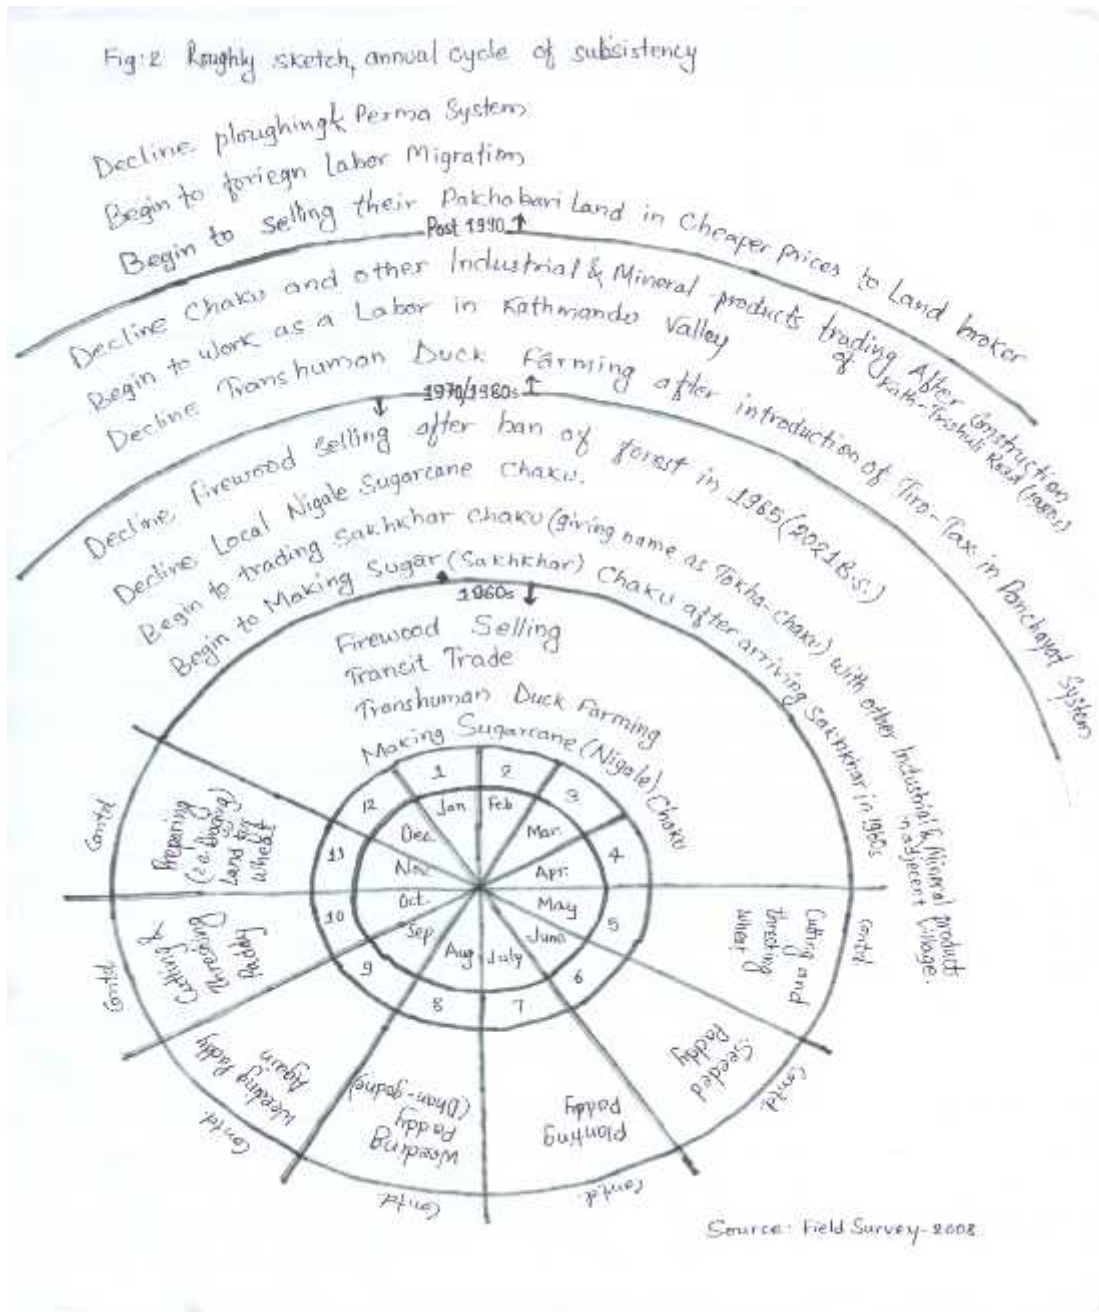 Fig:2 Roughly sketch, annual cycle of subsistency
Decline ploughing & Perma System
Begin to foriegn Labor Migration
Begin to selling their Pakhabari Land in Cheaper prices to Land broker
Post 1990
Decline Chaku and other Industrial & Mineral products trading After Construction
of Kath-Trishuli Road (1980s)
Begin to work as a Labor in Kathmandu Valley
Decline Transhuman Duck Farming after introduction of Tiro-Tax in Panchayat System
1970/1980s
Decline Firewood Selling after ban of forest in 1965 (2021 B.S.)
Decline Local Nigale Sugarcane Chaku.
Begin to trading Sakhkhar Chaku (giving name as Tokha-chaku) with other Industrial & Mineral product
in adjecent village.
Begin to Making Sugar (Sakhkhar) Chaku after arriving Sakhkhar in 1960s
1960s
Firewood Selling
Transit Trade
Transhuman Duck Farming
Making Sugarcane (Nigale) Chaku
1
2
3
4
5
6
7
8
9
10
11
12
Jan
Feb
Mar.
Apr.
May
June
July
Aug
Sep
Oct.
Nov
Dec
Cutting and
thresting
wheat
Contd
Seeded
Paddy
Contd.
Planting
Paddy
Contd.
Weeding
Paddy
(Dhan-godne)
Contd.
Weeding Paddy
Again
Contd.
Cutting &
Thresing
Paddy
Contd
Preparing
Land for
wheat
Contd
Source: Field Survey-2008